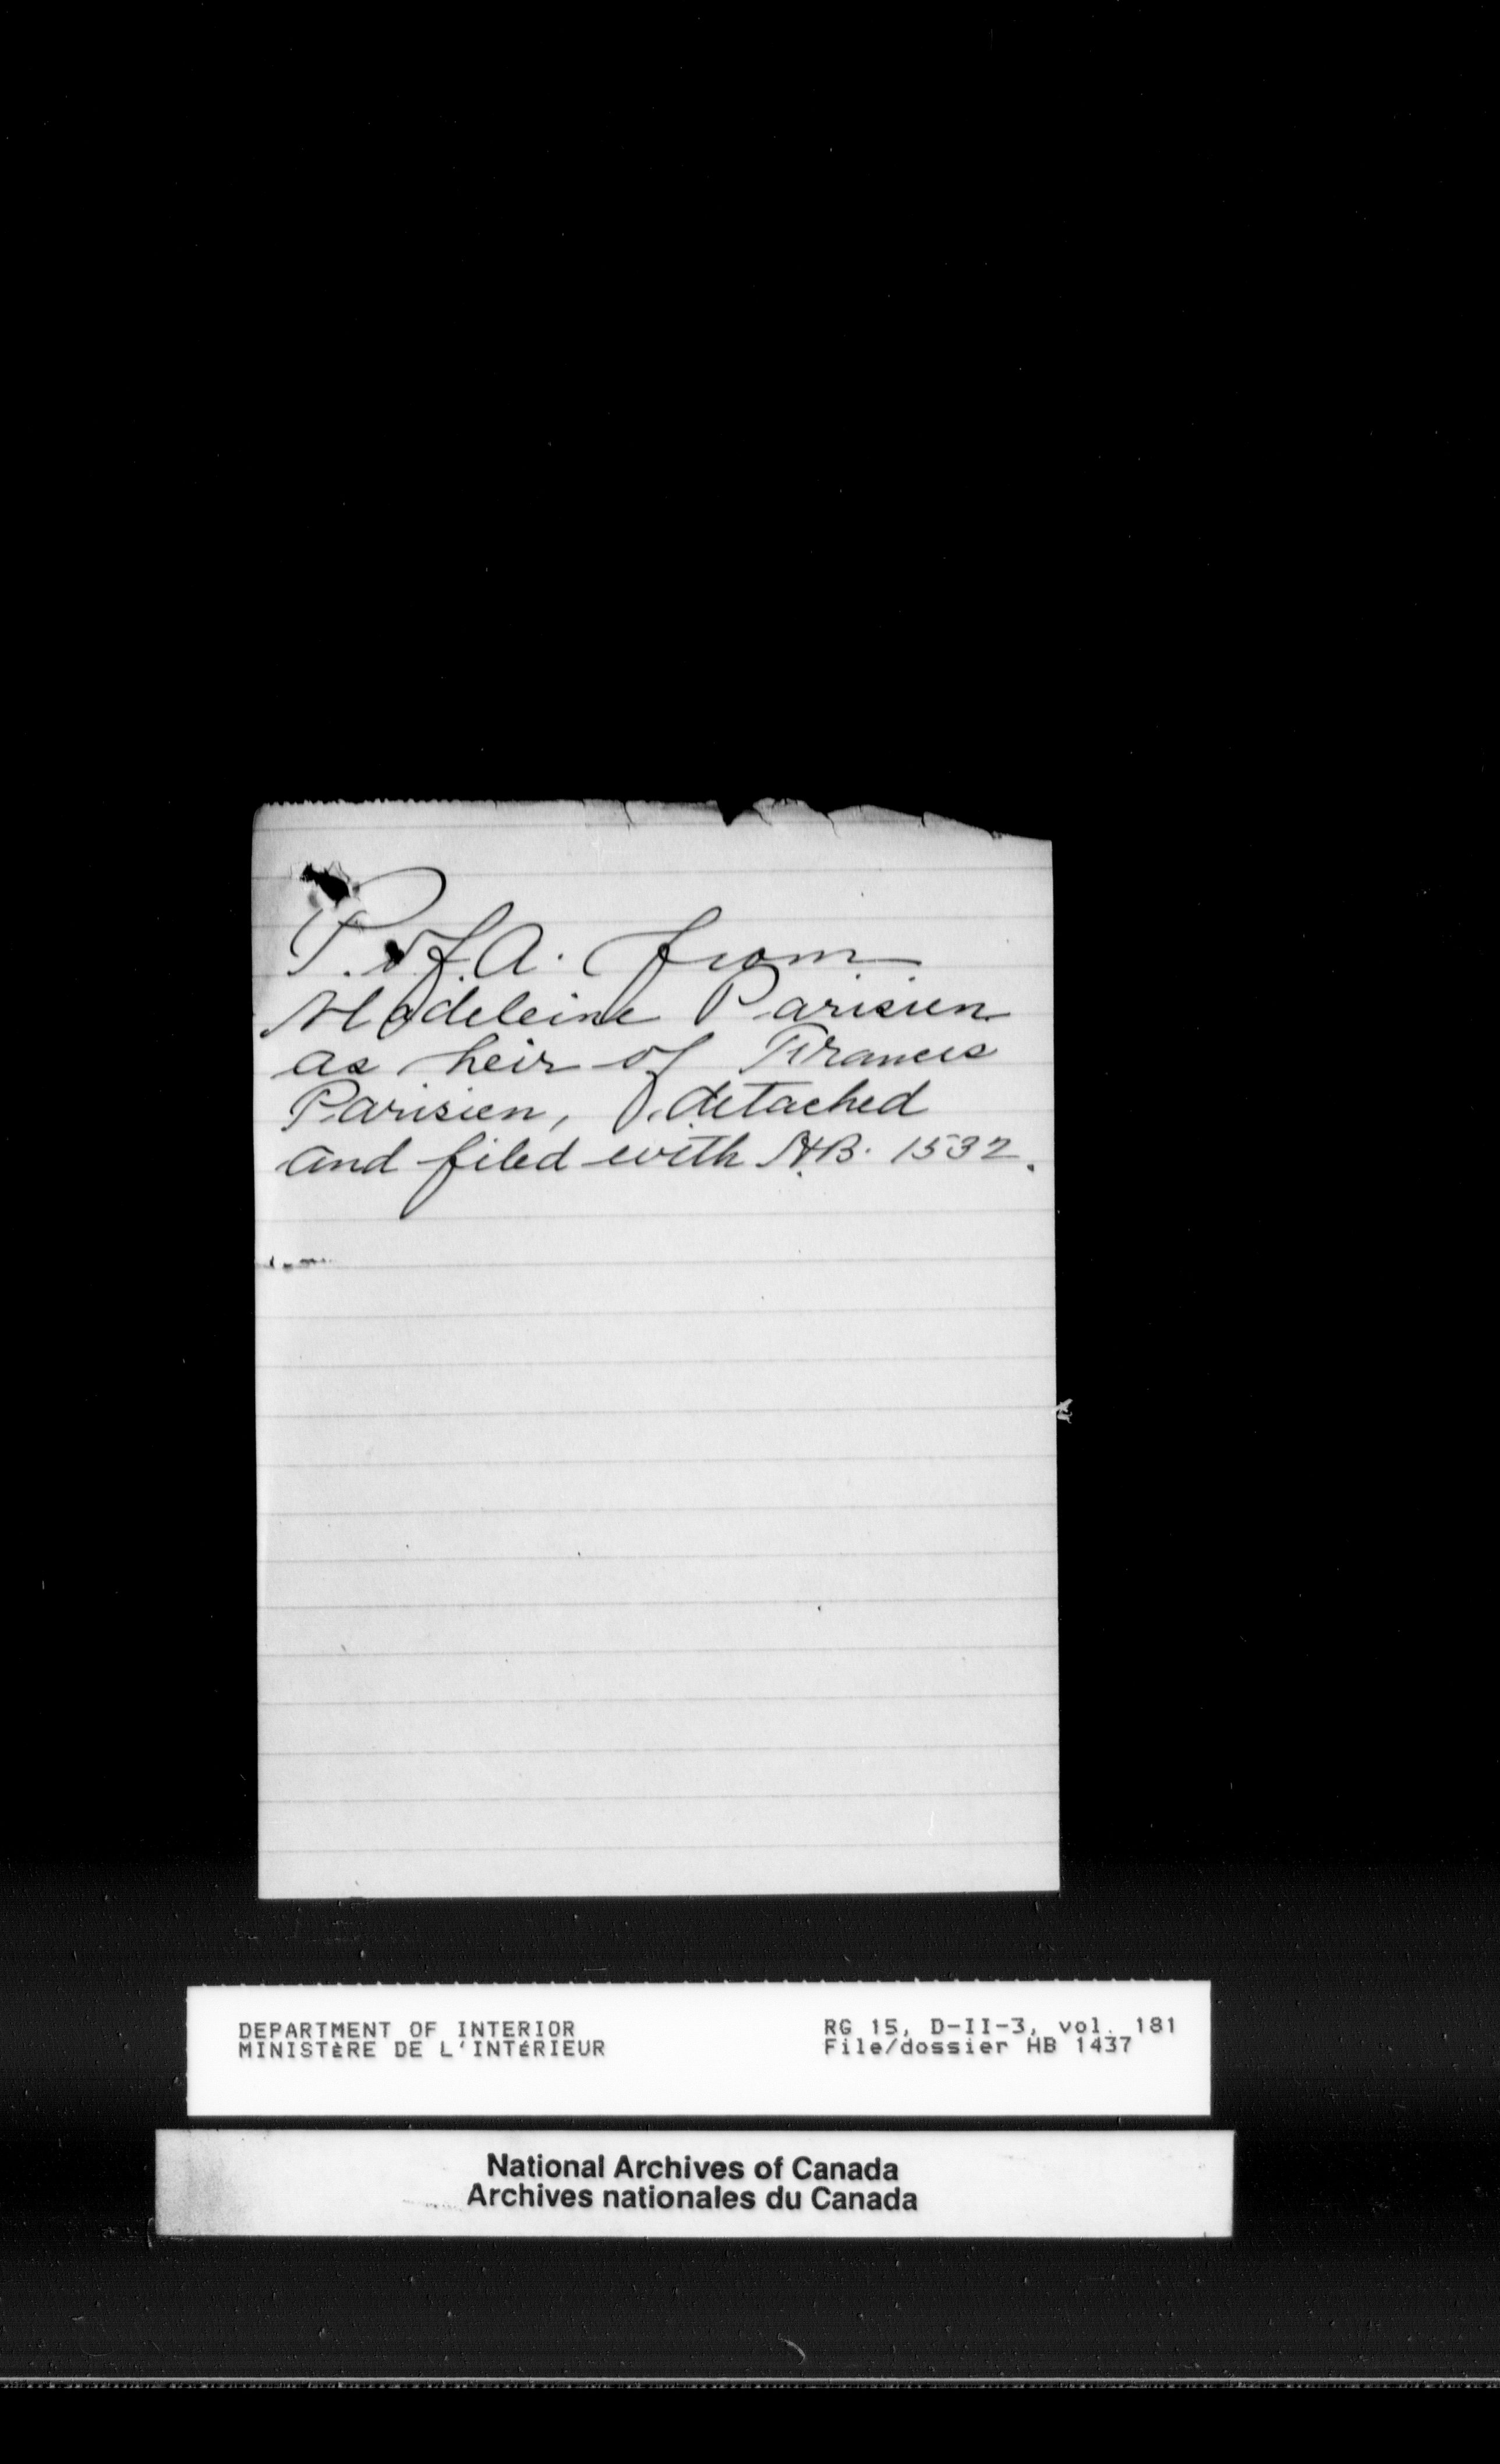 P. of A. from
Madeleine Parisien
as heir of Francis
Parisien, detached
and filed with HB. 1532.
DEPARTMENT OF INTERIOR
MINISTÈRE DE L'INTÉRIEUR
RG 15, D-II-3, vol. 181
File/dossier HB 1437
National Archives of Canada
Archives nationales du Canada